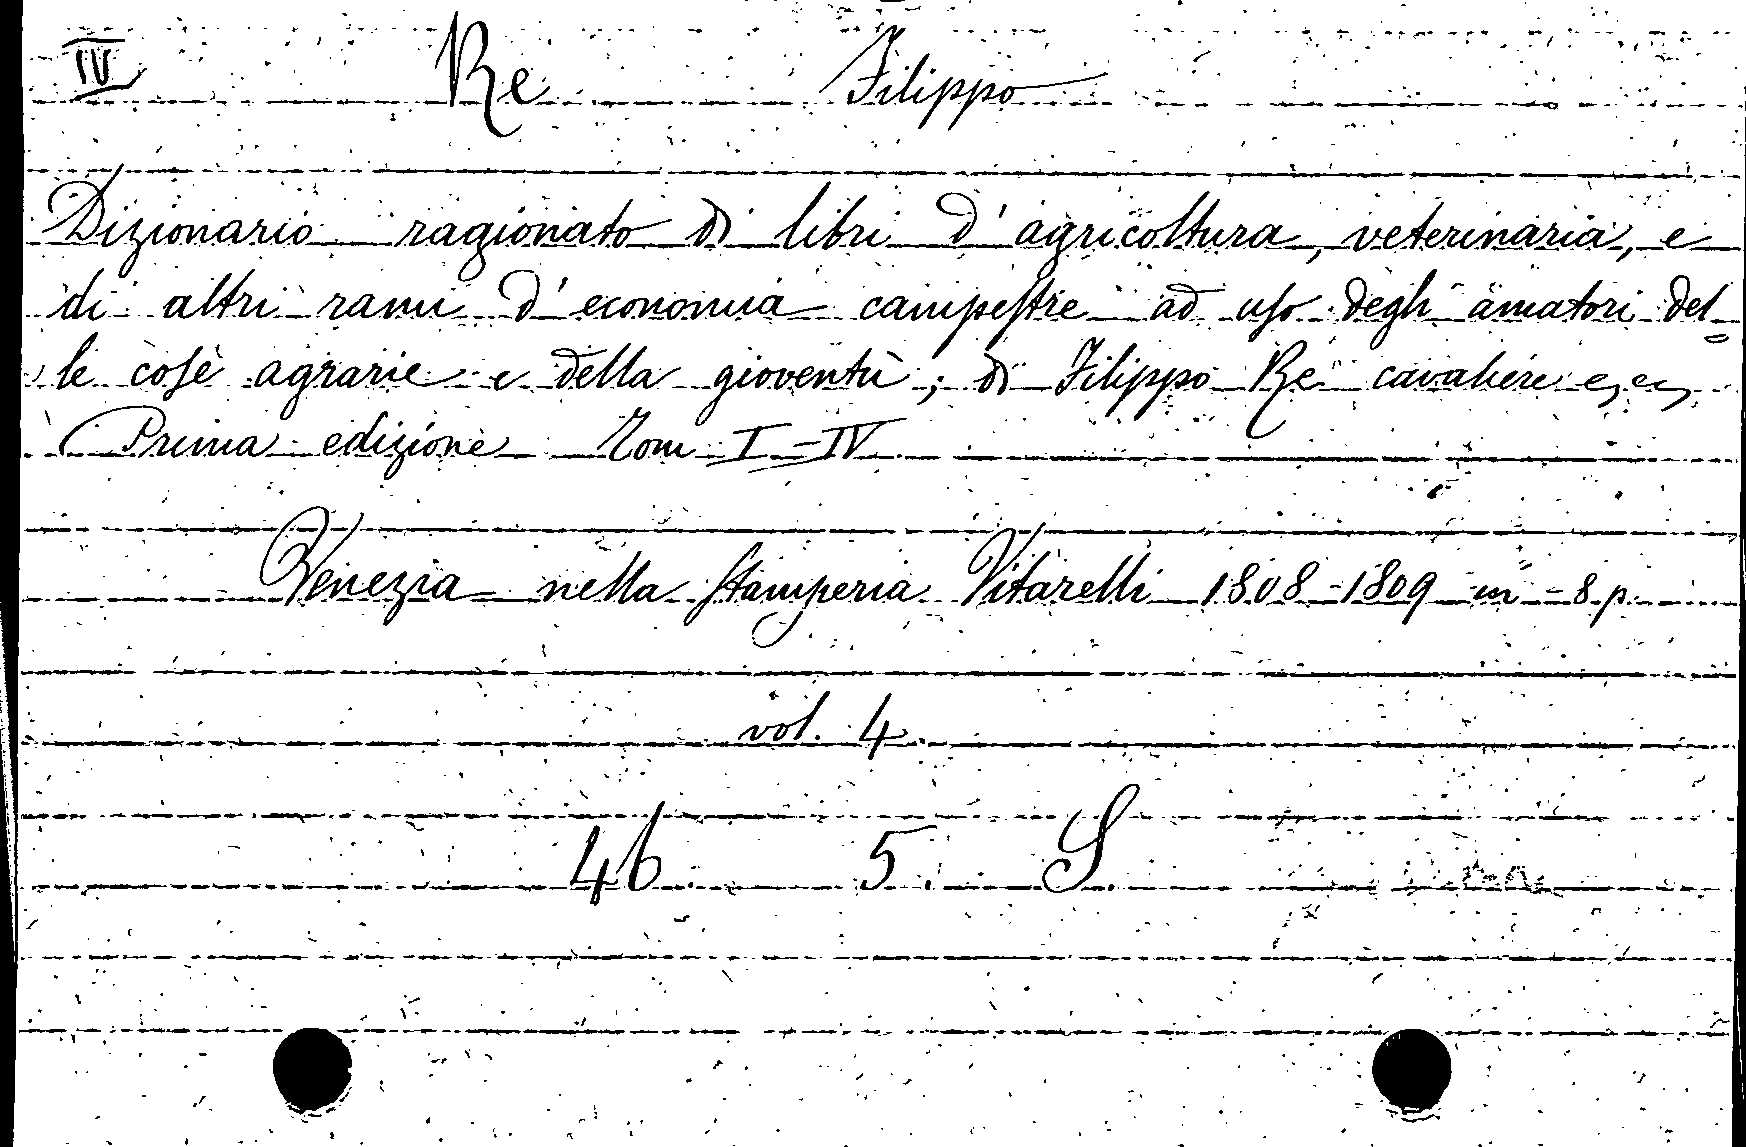 IV Re Filippo
Dizionario ragionato di libri d'agricoltura, veterinaria, e
di altri rami d'economia campestre ad uso degli amatori del=
le cose agrarie e della gioventù; di Filippo Re cavaliere
Prima edizione Tom I-IV
Venezia nella stamperia Vitarelli 1808-1809 in-8 p.
vol. 4.
46. 5. S.